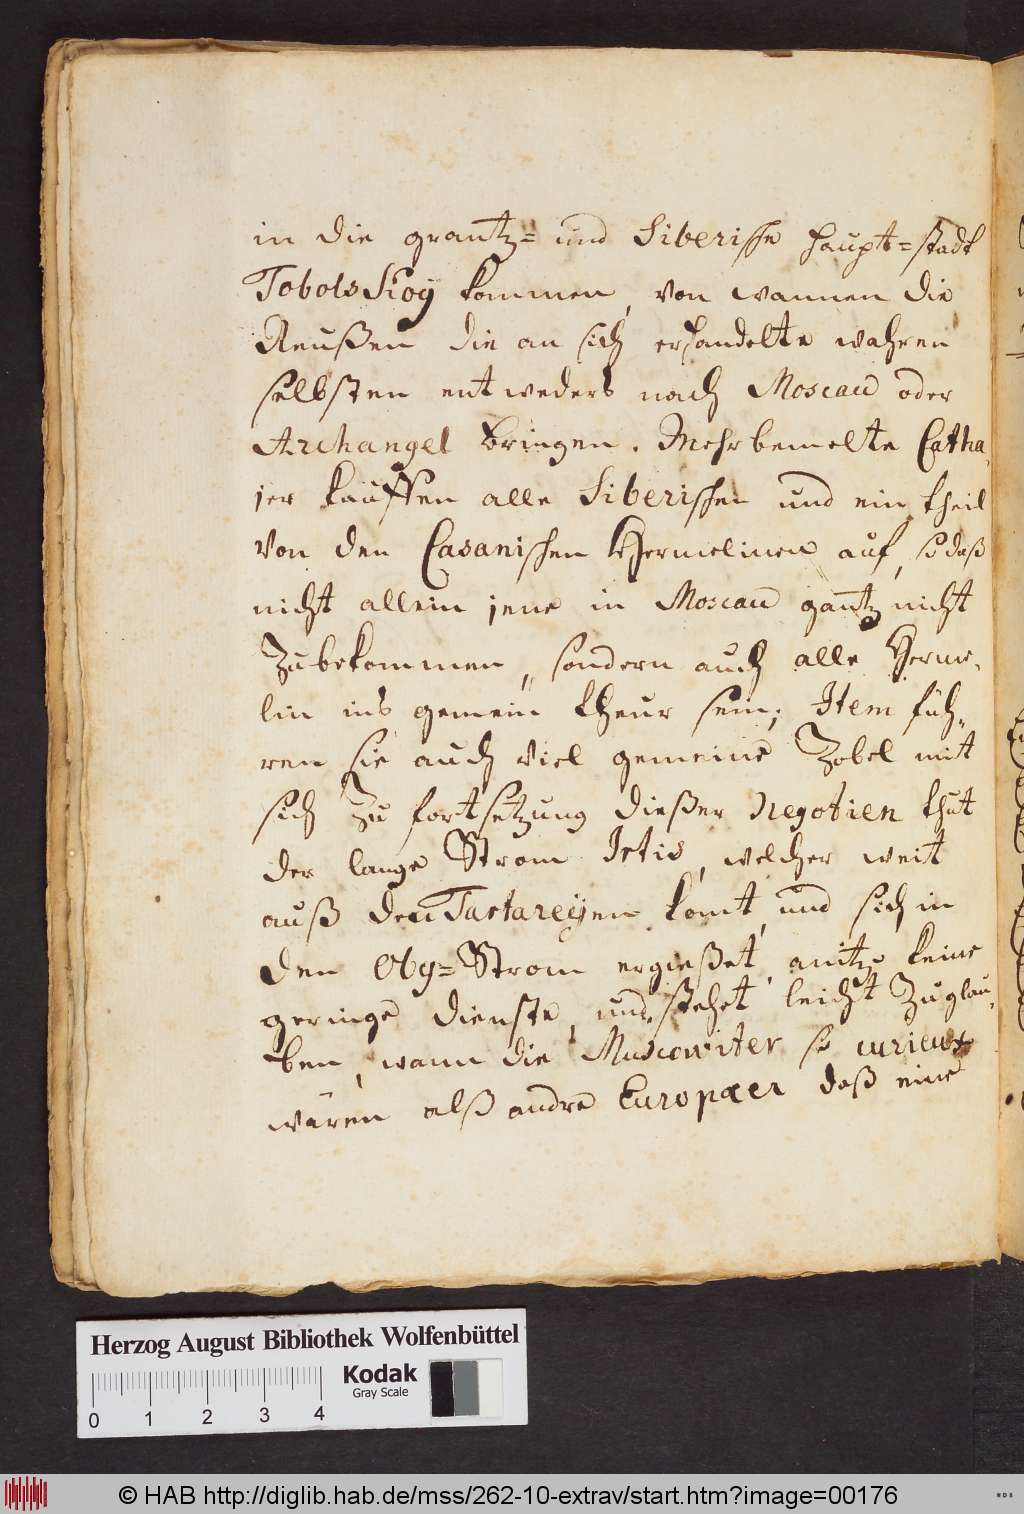 in die grantz= und Siberische haupt=stadt
Tobolskoy kommen, von wannen die
Reußen die an sich erhandelte wahren
selbsten entweders nach Moscau oder
Archangel bringen. Mehrbemelte Catha„
jer kauffen alle Siberischen und ein theil
von den Casanischen Hermelinen auf, so daß
nicht allein jene in Moscau gantz nicht
Zubekommen, sondern auch alle Herme„
lin ins gemein theur sein; Item füh„
ren sie auch viel gemeine Zobel mit
sich Zu fortsetzung dießer negotien thut
der lange Strom Irtis, welcher weit
auß den Tartareÿen komt, und sich in
den Oby=Strom ergießet, anitzo keine
geringe dienste, und stehet leicht Zuglau„
ben, wann die Muscowiter so curieux
wären alß andre Europæer daß eine
Herzog August Bibliothek Wolfenbüttel
Kodak
Gray Scale
0 1 2 3 4
© HAB http://diglib.hab.de/mss/262-10-extrav/start.htm?image=00176